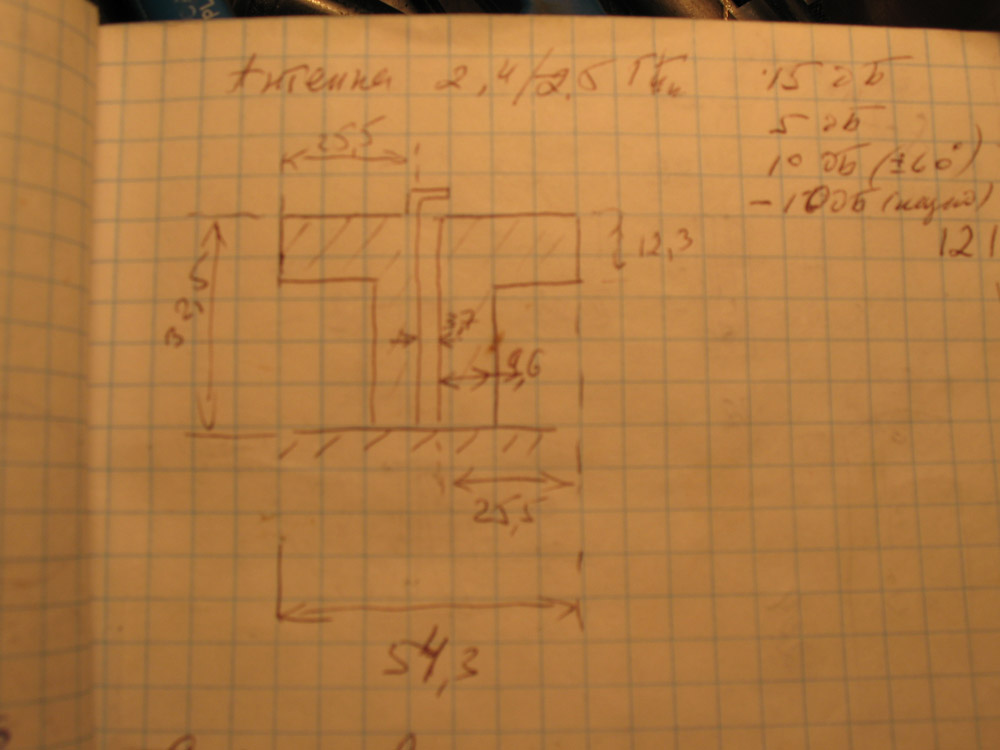 Антенна 2,4/2,5 ГГц
15 дБ
5 дБ
10 дБ (±60°)
-10 дБ
121
25,5
12,3
32,5
3,7
9,6
25,5
54,3